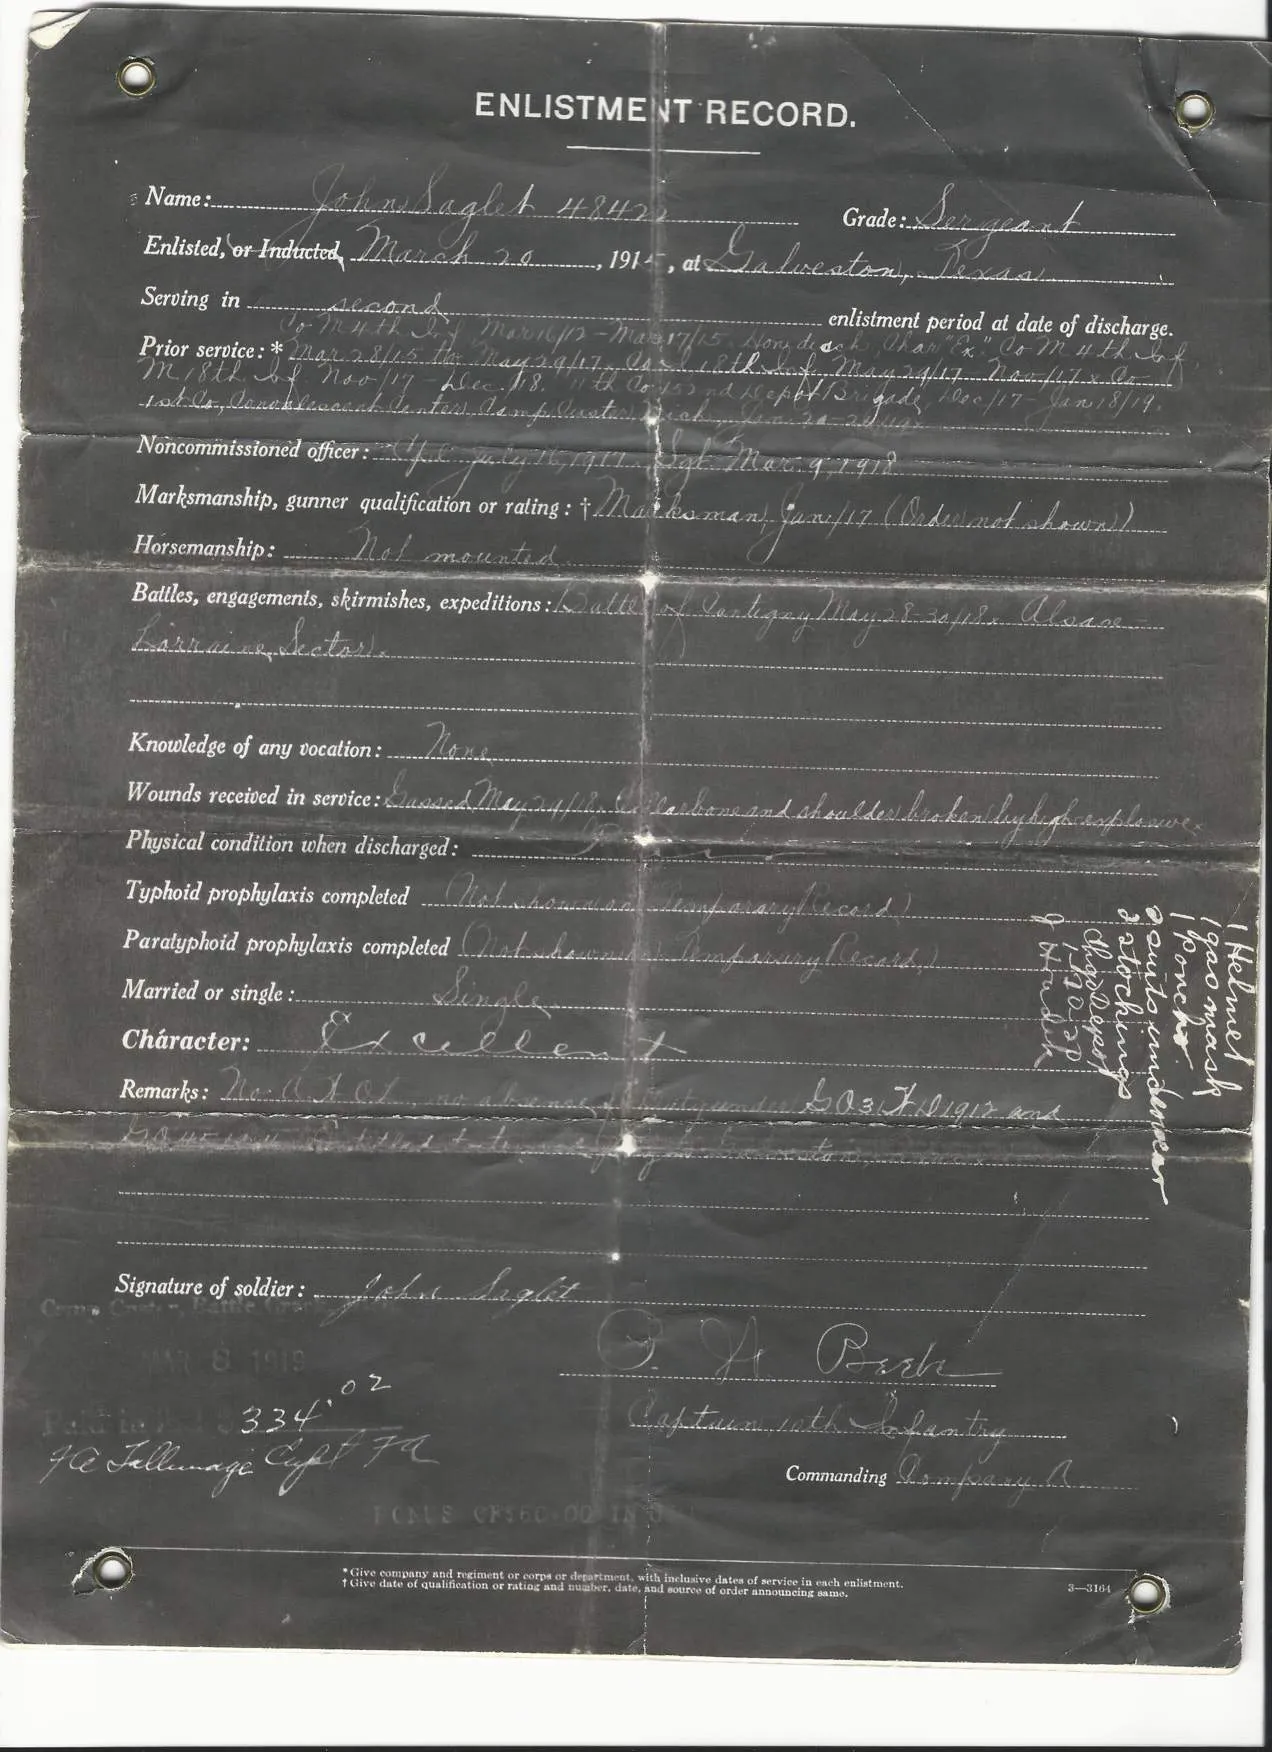 ENLISTMENT RECORD.
Name: John Saglet 4842 Grade: Sergeant
Enlisted, or Inducted, March 20, 191, at Galveston, Texas.
Serving in second enlistment period at date of discharge.
Co M 4th Inf Mar 16/12 – Mar 17/15. Char "Ex". Co M 4th Inf
Prior service: * Mar 28/15 to May 29/17. 18th Inf May 29/17 – Nov/17 Co
M 18th Inf Nov/17 – Dec/18. 11th Co 152nd Depot Brigade, Dec/17 – Jan 18/19.
1st Co, Convalescent Center, Camp Custer, Mich.
Noncommissioned officer: July 16, 1917 Sgt. Mar. 9, 1918
Marksmanship, gunner qualification or rating: † Marksman, Jan/17 (Order not shown)
Horsemanship: Not mounted
Battles, engagements, skirmishes, expeditions: Battle of Cantigny May 28-30/18. Alsace-
Lorraine Sector.
Knowledge of any vocation: None
Wounds received in service: Gassed May 24/18. Collarbone and shoulder broken by high explosive.
Physical condition when discharged:
Typhoid prophylaxis completed Not shown on Temporary Record)
Paratyphoid prophylaxis completed (Not shown on Temporary Record.)
Married or single: Single
Character: Excellent
Remarks: No absence under GO 31 WD 1912 and
GO 45 Entitled to
Signature of soldier: John Saglet
Camp Custer, Battle Creek
MAR 8 1919
Paid in Full 334.02
Capt
Captain 10th Infantry
Commanding Company
BONUS OF $60.00 IN
* Give company and regiment or corps or department, with inclusive dates of service in each enlistment.
† Give date of qualification or rating and number, date, and source of order announcing same.
3—3164
1 Helmet
1 gas mask
1 Poncho
2 suits underwear
2 stockings